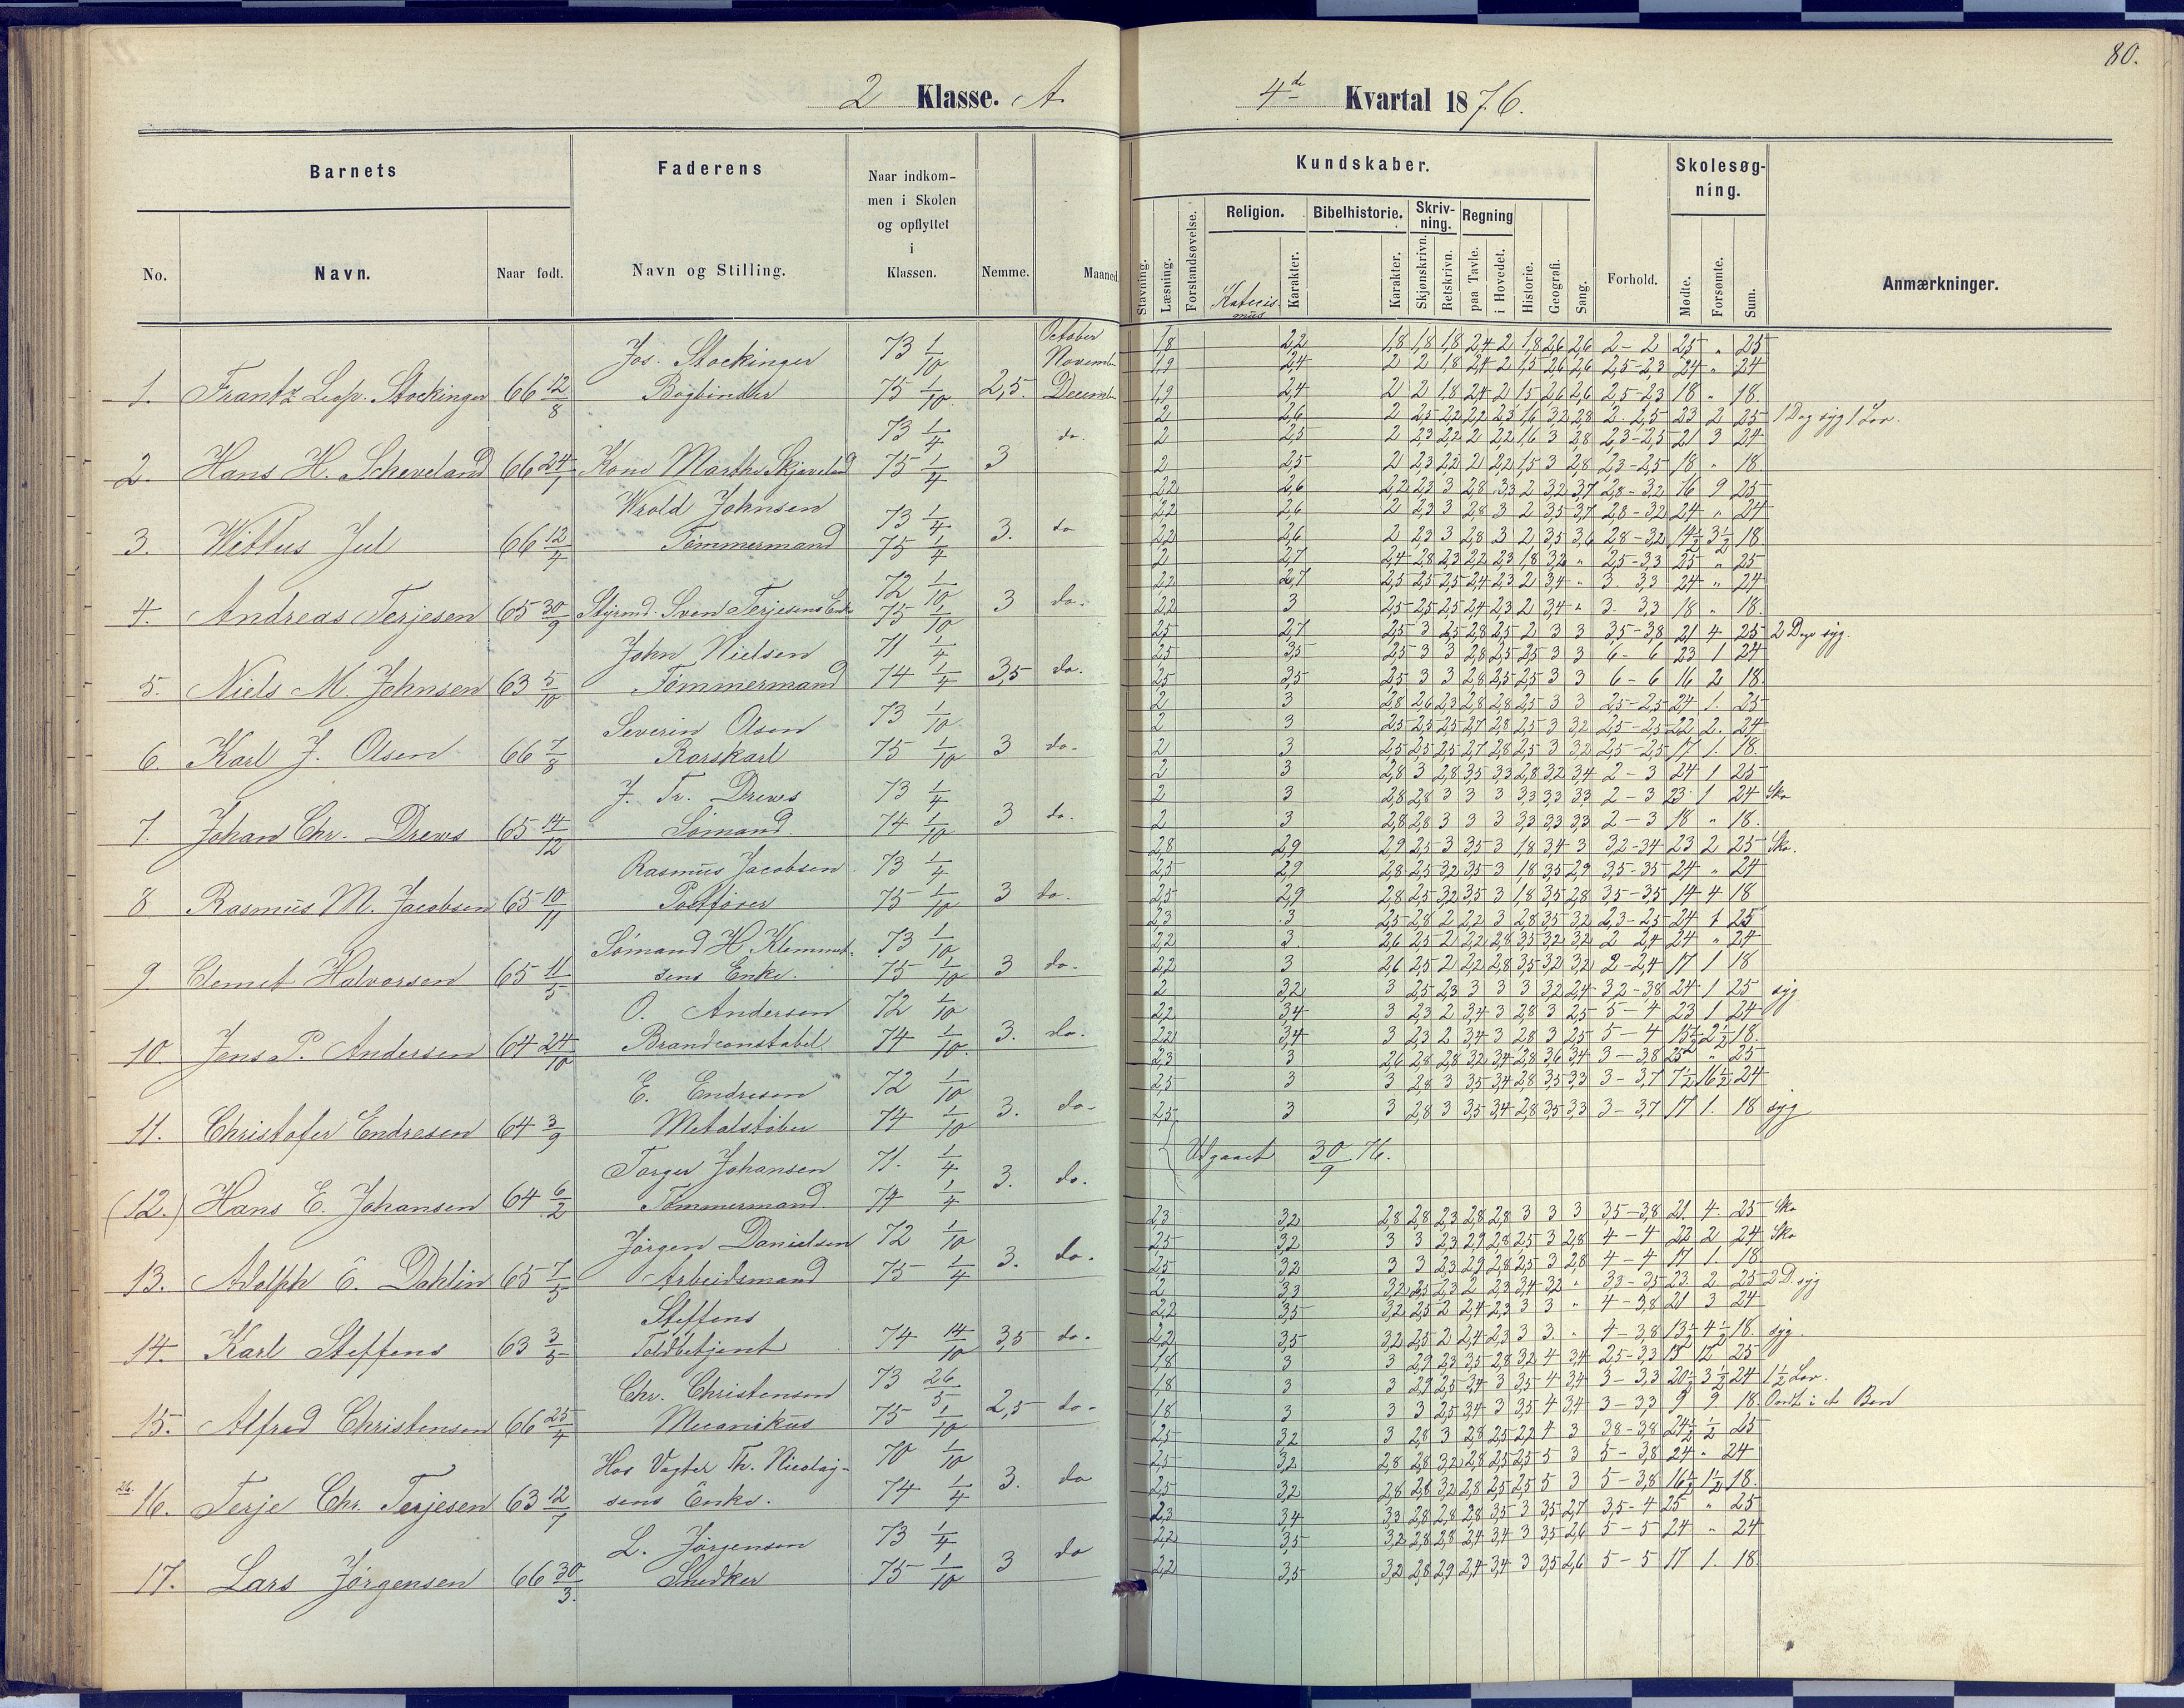 80.
2 Klasse. A.
4de Kvartal 1876.
Barnets
Faderens
Naar indkom-
men i Skolen
og opflyttet
i
Klassen.
No.
Navn.
Naar født.
Navn og Stilling.
Nemme.
Maaned.
Kundskaber.
Skolesøg-
ning.
Stavning.
Læsning.
Forstandsøvelse.
Religion.
Katecis-
mus
Karakter.
Bibelhistorie.
Karakter.
Skriv-
ning.
Skjønskrivn.
Retskrivn.
Regning
paa Tavle.
i Hovedet.
Historie.
Geografi.
Sang.
Forhold.
Mødte.
Forsømte.
Sum.
Anmærkninger.
Jos. Stockinger 73 1/10 October
Novemb
1. Frantz Leop. Stockinger 66 12/8 Bogbinder 75 1/10 2,5. Decemb
1,8 2,2 1,8 1,8 1,8 2,4 2 1,8 2,6 2,6 2-2 25 " 25
1,9 2,4 2 2 1,8 2,4 2 1,5 2,6 2,6 2,5-2,3 24 " 24
1,9 2,4 2 2 1,8 2,4 2 1,5 2,6 2,6 2,5-2,3 18 " 18.
73 1/4 do.
2. Hans H. Scheveland 66 24/1 Kone Marthe Skjeveland 75 1/4 3
2 2,6 2 2,5 2,2 2,2 2,3 1,6 3,2 2,8 2-2,5 23 2 25 1 Dag syg 1 Lov.
2 2,5 2 2,3 2,2 2 2,2 1,6 3 2,8 2,3-2,5 21 3 24
2 2,5 2 2,3 2,2 2 2,2 1,5 3 2,8 2,3-2,5 18 " 18.
Wrold Johnsen 73 1/4
3. Wittus Jul 66 12/4 Tømmermand 75 1/4 3. do
2,2 2,6 2,2 2,3 3 2,8 3,3 2 3,2 3,7 2,8-3,2 16 9 25
2,2 2,6 2 2,3 3 2,8 3 2 3,5 3,7 2,8-3,2 24 " 24
2,2 2,6 2 2,3 3 2,8 3 2 3,5 3,6 2,8-3,2 14 1/2 3 1/2 18
72 1/10
4. Andreas Terjesen 65 30/9 Styrmd. Sven Terjesens Enke 75 1/10 3 do.
2 2,7 2,4 2,8 2,3 2,2 2,3 1,8 3,2 " 2,5-3,3 25 " 25
2,2 2,7 2,5 2,5 2,5 2,4 2,3 2 3,4 " 3. 3,3 24 " 24
2,2 3 2,5 2,5 2,5 2,4 2,3 2 3,4 " 3. 3,3 18 " 18.
John Nielsen 71 1/4
5. Niels M. Johnsen 63 5/10 Tømmermand 74 1/4 3,5 do.
2,5 2,7 2,5 3 2,5 2,8 2,5 2 3 3 3,5-3,8 21 4 25 2 Dage syg.
2,5 3,5 2,5 3 3 2,8 2,5 2,5 3 3 6-6 23 1 24
2,5 3,5 2,5 3 3 2,8 2,5 2,5 3 3 6-6 16 2 18.
Severin Olsen 73 1/10
6. Karl J. Olsen 66 7/8 Rorskarl 75 1/10 3 do.
2 3 2,8 2,6 2,3 2,8 2,8 2,5 3 3 2,5-2,5 24 1. 25
2 3 2,5 2,5 2,5 2,7 2,8 2,5 3 3,2 2,5-2,5 22 2. 24
2 3 2,5 2,5 2,5 2,7 2,8 2,5 3 3,2 2,5-2,5 17 1. 18.
J. Fr. Drews 73 1/4
7. Johan Chr. Drews 65 14/12 Sømand. 74 1/10 3 do.
2 3 2,8 3 2,8 3,5 3,3 2,8 3,2 3,4 2-3 24 1 25
2 3 2,8 2,8 3 3 3 3,3 3,3 3,3 2-3 23 1 24 Sko
2 3 2,8 2,8 3 3 3 3,3 3,3 3,3 2-3 18 " 18.
Rasmus Jacobsen 73 1/4
8 Rasmus M. Jacobsen 65 10/11 Postfører 75 1/10 3 do.
2,8 2,9 2,9 2,5 3 3,5 3 1,8 3,4 3 3,2-3,4 23 2 25 Sko.
2,5 2,9 2,8 2,5 3,2 3,5 3 1,8 3,5 2,9 3,5-3,5 24 " 24
2,5 2,9 2,8 2,5 3,2 3,5 3 1,8 3,5 2,8 3,5-3,5 14 4 18
Sømand H. Klemmet- 73 1/10
9 Clemet Halvorsen 65 11/5 sens Enke. 75 1/10 3 do.
2,3 3 2,5 2,8 2 2,2 3 2,8 3,5 3,2 2,3-2,5 24 1 25
2,2 3. 2,6 2,5 2 2,2 2,8 3,5 3,2 3,2 2 2,4 24 " 24
2,2 3 2,6 2,5 2 2,2 2,8 3,5 3,2 3,2 2-2,4 17 1 18
O. Andersen 72 1/10
10. Jens P. Andersen 64 24/10 Brandconstabel 74 1/10. 3. do.
2 3,2 3 2,5 2,3 3 3 3 3,2 2,4 3,2-3,8 24 1 25 syg
2,2 3,4 3 2,3 2 3,4 3 2,8 3 2,5 5-4 23 1 24
2,2 3,4 3 2,3 2 3,4 3 2,8 3 2,5 5-4 15 1/2 2 1/2 18.
E. Endresen 72 1/10
11. Christofer Endresen 64 3/9 Metalstøber 74 1/10 3. do-
2,3 3 2,6 2,8 2,8 3,2 3,4 2,8 3,6 3,4 3-3,8 25 " 25
2,5 3 3 2,8 3 3,5 3,4 2,8 3,5 3,3 3-3,7 7 1/2 16 1/2 24
2,5 3 3 2,8 3 3,5 3,4 2,8 3,5 3,3 3-3,7 17 1. 18 syg
Torger Johansen 71. 1/4
(12.) Hans E. Johansen 64 6/2 Tømmermand. 74 1/4 3. do.
Udgaaet 30/9 76.
Jørgen Danielsen 72 1/10
13. Adolph E. Dahlin 65 7/5 Arbeidsmand 75 1/4 3. do.
2,3 3,2 2,8 2,8 2,3 2,8 2,8 3 3 3 3,5-3,8 21. 4. 25 Sko
2,5 3,2 3 3 2,3 2,9 2,8 2,5 3 2,8 4-4 22 2 24 Sko
2,5 3,2 3 3 2,3 2,9 2,8 2,5 3 2,8 4-4 17 1. 18
Steffens
14. Karl Steffens 63 3/5 Toldbetjent 74 14/10 3,5 do.
2 3,3 3,2 2,5 2,3 2 2,3 3,4 3,2 " 3,3-3,5 23 2 25 2 D. syg
2,2 3,5 3,2 2,5 2 2,4 2,3 3 3 " 4-3,8 21 3 24
2,2 3,5 3,2 2,5 2 2,4 2,3 3 3. " 4-3,8 13 1/2 4 1/2 18. syg.
Chr. Christensen 73 26/5
15. Alfred Christensen 66 25/4 Mecanikus 75 1/10 2,5 do-
1,8 3 3 2,9 2,3 3,5 2,8 3,2 4 3,4 2,5-3,3 13 12 25
1,8 3 3 2,9 2,5 3,4 3 3,5 4 3,4 3-3,3 20 1/2 3 1/2 24 1 1/2 Lov.
1,8 3 3 3 2,5 3,4 3 3,5 4 3,4 3-3,3 9 9 18. Ondt i et Ben
Hos Vagter Th. Nicolaj- 70 1/10
26. 16. Terje Chr. Terjesen 63 12/7 sens Enke. 74 1/4 3. do
2,5 3,2 3 2,8 3 2,8 2,5 2,2 4 3 3,8-3,8 24 1/2 1/2 25
2,5 3,2 2,8 2,8 3,2 2,8 2,5 2,5 5 3 5-3,8 24 " 24
2,5 3,2 2,8 2,8 3,2 2,8 2,5 2,5 5 3 5-3,8 16 1/2 1 1/2 18.
L. Jørgensen 73 1/4
17. Lars Jørgensen 66 30/3. Snedker 75 1/10 3 do
2,3 3,4 3,3 2,8 2,8 2,8 3,5 3 3,5 2,7 3,5-4 25 " 25
2,2 3,5 3,2 2,8 2,8 2,4 3,4 3 3,5 2,6 5-5 24 " 24
2,2 3,5 3,2 2,8 2,9 2,4 3,4 3 3,5 2,6 5-5 17 1. 18.